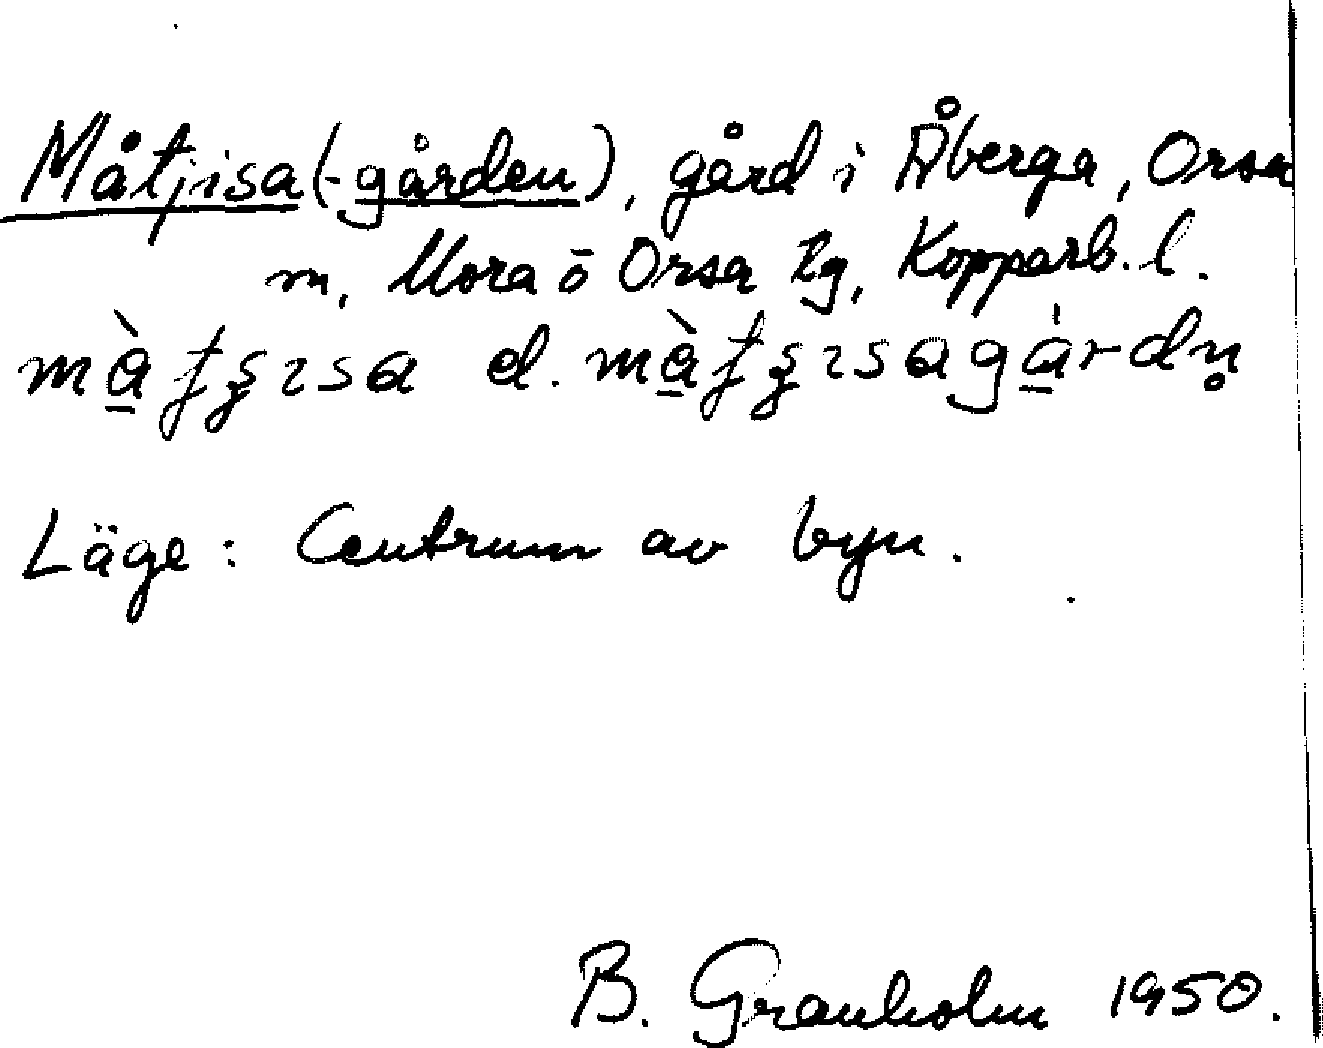 Måtjisa(-gården), gård i Åberga, Orsa
m, Mora o Orsa tg, Kopparb. l.
d.
Läge: Centrum av byn.
B. Granholm 1950.